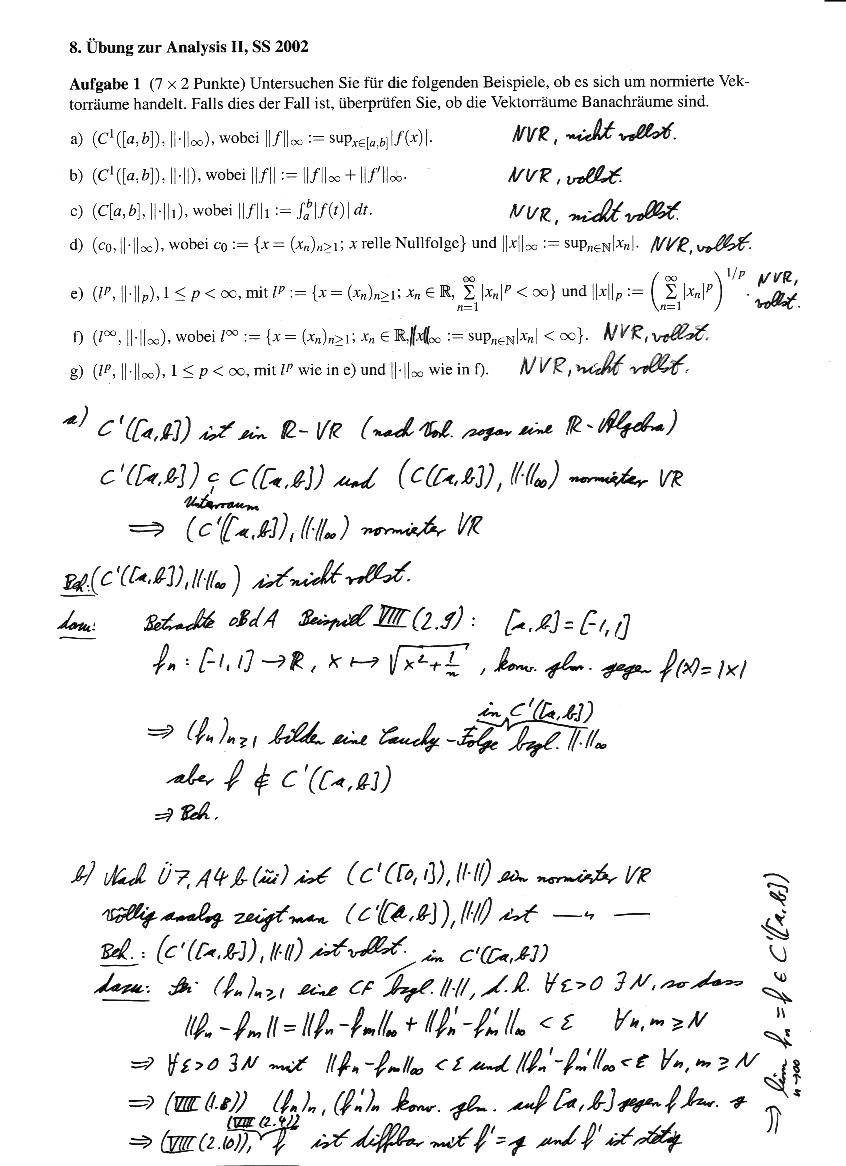 8. Übung zur Analysis II, SS 2002
Aufgabe 1 (7 × 2 Punkte) Untersuchen Sie für die folgenden Beispiele, ob es sich um normierte Vek-
torräume handelt. Falls dies der Fall ist, überprüfen Sie, ob die Vektorräume Banachräume sind.
a) (C¹([a,b]), ||·||∞), wobei ||f||∞ := sup_{x∈[a,b]}|f(x)|. NVR, nicht vollst.
b) (C¹([a,b]), ||·||), wobei ||f|| := ||f||∞ + ||f′||∞. NVR, vollst.
c) (C[a,b], ||·||₁), wobei ||f||₁ := ∫ₐᵇ|f(t)| dt. NVR, nicht vollst.
d) (c₀, ||·||∞), wobei c₀ := {x = (xₙ)ₙ≥₁; x relle Nullfolge} und ||x||∞ := sup_{n∈ℕ}|xₙ|. NVR, vollst.
e) (lᵖ, ||·||ₚ), 1 ≤ p < ∞, mit lᵖ := {x = (xₙ)ₙ≥₁; xₙ ∈ ℝ, ∑_{n=1}^{∞} |xₙ|ᵖ < ∞} und ||x||ₚ := (∑_{n=1}^{∞} |xₙ|ᵖ)^{1/p}. NVR, vollst.
f) (l^∞, ||·||∞), wobei l^∞ := {x = (xₙ)ₙ≥₁; xₙ ∈ ℝ, ||x||∞ := sup_{n∈ℕ}|xₙ| < ∞}. NVR, vollst.
g) (lᵖ, ||·||∞), 1 ≤ p < ∞, mit lᵖ wie in e) und ||·||∞ wie in f). NVR, nicht vollst.
a) C¹([a,b]) ist ein ℝ-VR (nach Vorl. sogar eine ℝ-Algebra)
C¹([a,b]) ⊆ C([a,b]) und (C([a,b]), ||·||∞) normierter VR
Unterraum
⟹ (C¹([a,b]), ||·||∞) normierter VR
Beh.: (C¹([a,b]), ||·||∞) ist nicht vollst.
dazu: Betrachte oBdA Beispiel VIII (2.9): [a,b] = [-1,1]
fₙ : [-1,1] → ℝ, x ↦ √(x² + 1/n), konv. glm. gegen f(x) = |x|
in C¹([a,b])
⟹ (fₙ)ₙ≥₁ bilden eine Cauchy-Folge bzgl. ||·||∞
aber f ∉ C¹([a,b])
⟹ Beh.
b) Nach Ü7, A4 b (iii) ist (C¹([0,1]), ||·||) ein normierter VR
völlig analog zeigt man (C¹([a,b]), ||·||) ist — " —
Beh.: (C¹([a,b]), ||·||) ist vollst.
in C¹([a,b])
dazu: Sei (fₙ)ₙ≥₁ eine CF bzgl. ||·||, d.h. ∀ε>0 ∃N, so dass
||fₙ - fₘ|| = ||fₙ - fₘ||∞ + ||fₙ′ - fₘ′||∞ < ε ∀n,m ≥ N
⟹ ∀ε>0 ∃N mit ||fₙ - fₘ||∞ < ε und ||fₙ′ - fₘ′||∞ < ε ∀n,m ≥ N
⟹ (VIII (1.8)) (fₙ)ₙ, (fₙ′)ₙ konv. glm. auf [a,b] gegen f bzw. g
(VIII (2.4))
⟹ (VIII (2.10)), f ist diffbar mit f′ = g und f′ ist stetig
⟹ lim_{n→∞} fₙ = f ∈ C¹([a,b])